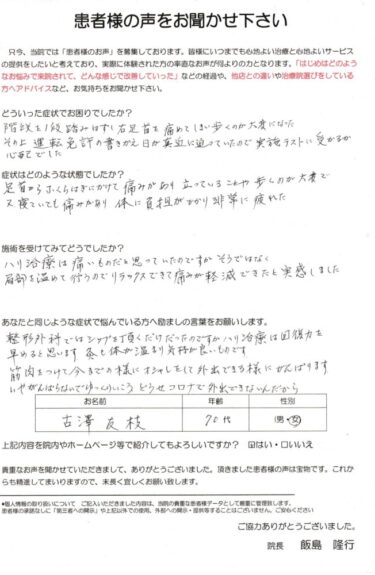 患者様の声をお聞かせ下さい
只今、当院では「患者様のお声」を募集しております。皆様にいつまでも心地よい治療と心地よいサービス
の提供をしたいと考えており、実際に体験された方の率直なお声が何よりの力となります。「はじめはどのよう
なお悩みで来院されて、どんな感じで改善していった」などの経過や、他店との違いや治療院選びをしている
方へアドバイスなど、お気持ちをお聞かせ下さい。
どういった症状でお困りでしたか？
階段を1段踏みはずし右足首を痛めてしまい歩くのが大変になった
その上 運転免許の書きかえ日が真近に迫っていたので実技テストに受かるか
心配でした
症状はどのような状態でしたか？
足首からふくらはぎにかけて痛みがあり 立っていることや歩くのが大変で
又寝ていても痛みがあり 体に負担がかかり非常に疲れた
施術を受けてみてどうでしたか？
ハリ治療は痛いものだと思っていたのですが そうではなく
肩部を温めて行うのでリラックスできて痛みが軽減できたと実感しました
あなたと同じような症状で悩んでいる方へ励ましの言葉をお願いします。
整形外科ではシップを頂くだけだったのですがハリ治療は回復力を
早めると思います 灸も体が温まり気持が良いものです
筋肉をつけて今までの様にオシャレをして外出できる様にがんばります
いやがんばらないでゆっくりいこう どうせコロナで外出できないんだから
お名前 年齢 性別
古澤 友枝 70代 男・女
上記内容を院内やホームページ等で紹介してもよろしいですか？ ☑はい・□いいえ
貴重なお声を聞かせていただきまして、ありがとうございました。頂きました患者様の声は宝物です。これか
らも精進してまいりますので、末長く宜しくお願い致します。
●個人情報の取り扱いについて ご記入いただきました内容は、当院の貴重な患者様データとして厳重に管理致します。
患者様の承諾なしに「第三者への開示」や上記以外での使用、外部への開示・提供等することはございません。ご安心ください
ご協力ありがとうございました。
院長 飯島 隆行